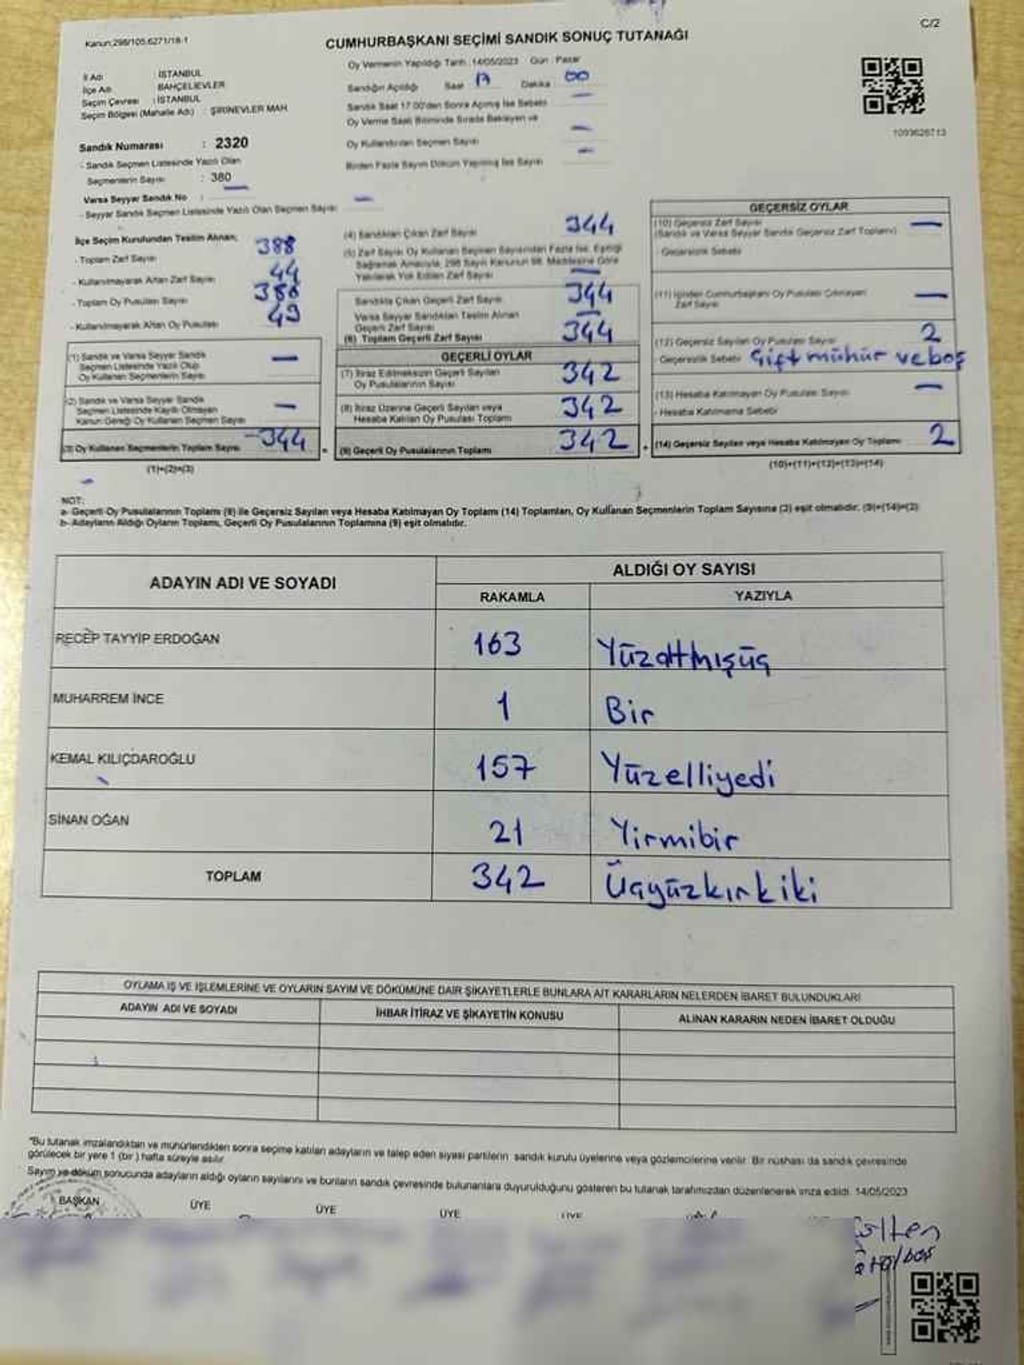 C/2
Kanun:298/105,6271/18-1
CUMHURBAŞKANI SEÇİMİ SANDIK SONUÇ TUTANAĞI
İl Adı : İSTANBUL
İlçe Adı : BAHÇELİEVLER
Seçim Çevresi : İSTANBUL
Seçim Bölgesi (Mahalle Adı) : ŞİRİNEVLER MAH.
Oy Vermenin Yapıldığı Tarih :14/05/2023 Gün : Pazar
Sandığın Açıldığı Saat 17 Dakika 00
Sandık Saat 17.00'den Sonra Açılmış İse Sebebi
Oy Verme Saati Bitiminde Sırada Bekleyen ve
Oy Kullandırılan Seçmen Sayısı
Birden Fazla Sayım Döküm Yapılmış İse Sayısı
1093626713
Sandık Numarası : 2320
- Sandık Seçmen Listesinde Yazılı Olan
Seçmenlerin Sayısı : 380
Varsa Seyyar Sandık No :
- Seyyar Sandık Seçmen Listesinde Yazılı Olan Seçmen Sayısı
İlçe Seçim Kurulundan Teslim Alınan;
- Toplam Zarf Sayısı 388
- Kullanılmayarak Artan Zarf Sayısı 44
- Toplam Oy Pusulası Sayısı 388
- Kullanılmayarak Artan Oy Pusulası 43
(1) Sandık ve Varsa Seyyar Sandık
Seçmen Listesinde Yazılı Olup
Oy Kullanan Seçmenlerin Sayısı —
(2) Sandık ve Varsa Seyyar Sandık
Seçmen Listesinde Kayıtlı Olmayan
Kanun Gereği Oy Kullanan Seçmen Sayısı —
(3) Oy Kullanan Seçmenlerin Toplam Sayısı 344
(1)+(2)=(3)
(4) Sandıktan Çıkan Zarf Sayısı 344
(5) Zarf Sayısı Oy Kullanan Seçmen Sayısından Fazla İse, Eşitliği
Sağlamak Amacıyla, 298 Sayılı Kanunun 98. Maddesine Göre
Yakılarak Yok Edilen Zarf Sayısı —
Sandıkta Çıkan Geçerli Zarf Sayısı 344
Varsa Seyyar Sandıktan Teslim Alınan
Geçerli Zarf Sayısı —
(6) Toplam Geçerli Zarf Sayısı 344
GEÇERLİ OYLAR
(7) İtiraz Edilmeksizin Geçerli Sayılan
Oy Pusulalarının Sayısı 342
(8) İtiraz Üzerine Geçerli Sayılan veya
Hesaba Katılan Oy Pusulası Toplamı 342
(9) Geçerli Oy Pusulalarının Toplamı 342
GEÇERSİZ OYLAR
(10) Geçersiz Zarf Sayısı
(Sandık ve Varsa Seyyar Sandık Geçersiz Zarf Toplamı) —
- Geçersizlik Sebebi
(11) İçinden Cumhurbaşkanı Oy Pusulası Çıkmayan
Zarf Sayısı —
(12) Geçersiz Sayılan Oy Pusulası Sayısı 2
- Geçersizlik Sebebi Çift mühür ve boş
(13) Hesaba Katılmayan Oy Pusulası Sayısı —
- Hesaba Katılmama Sebebi
(14) Geçersiz Sayılan veya Hesaba Katılmayan Oy Toplamı 2
(10)+(11)+(12)+(13)=(14)
NOT:
a- Geçerli Oy Pusulalarının Toplamı (9) ile Geçersiz Sayılan veya Hesaba Katılmayan Oy Toplamı (14) Toplamları, Oy Kullanan Seçmenlerin Toplam Sayısına (3) eşit olmalıdır. (9)+(14)=(3)
b- Adayların Aldığı Oyların Toplamı, Geçerli Oy Pusulalarının Toplamına (9) eşit olmalıdır.
ADAYIN ADI VE SOYADI
ALDIĞI OY SAYISI
RAKAMLA YAZIYLA
RECEP TAYYİP ERDOĞAN 163 Yüzaltmışüç
MUHARREM İNCE 1 Bir
KEMAL KILIÇDAROĞLU 157 Yüzelliyedi
SİNAN OĞAN 21 Yirmibir
TOPLAM 342 Üçyüzkırkiki
OYLAMA İŞ VE İŞLEMLERİNE VE OYLARIN SAYIM VE DÖKÜMÜNE DAİR ŞİKAYETLERLE BUNLARA AİT KARARLARIN NELERDEN İBARET BULUNDUKLARI
ADAYIN ADI VE SOYADI İHBAR İTİRAZ VE ŞİKAYETİN KONUSU ALINAN KARARIN NEDEN İBARET OLDUĞU
*Bu tutanak imzalandıktan ve mühürlendikten sonra seçime katılan adayların ve talep eden siyasi partilerin sandık kurulu üyelerine veya gözlemcilerine verilir. Bir nüshası da sandık çevresinde
görülecek bir yere 1 (bir) hafta süreyle asılır.
Sayım ve döküm sonucunda adayların aldığı oyların sayılarını ve bunların sandık çevresinde bulunanlara duyurulduğunu gösteren bu tutanak tarafımızdan düzenlenerek imza edildi. 14/05/2023
BAŞKAN ÜYE ÜYE ÜYE ÜYE